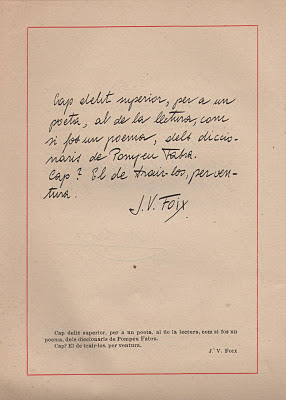 Cap delit superior, per a un
poeta, al de la lectura, com
si fos un poema, dels diccio-
naris de Pompeu Fabra.
Cap? El de trair-los, per ven-
tura.
J. V. Foix
Cap delit superior, per a un poeta, al de la lectura, com si fos un
poema, dels diccionaris de Pompeu Fabra.
Cap? El de trair-los, per ventura.
J. V. Foix